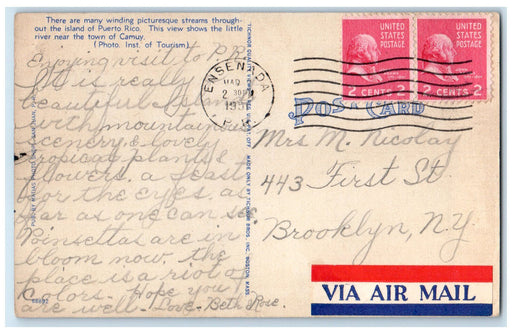 There are many winding picturesque streams through-
out the island of Puerto Rico. This view shows the little
river near the town of Camuy.
(Photo. Inst. of Tourism)
Enjoying visit to P.R.
It is really a
beautiful Island
with mountainous
scenery & lovely
tropical plants &
flowers. a feast
for the eyes, as
far as one can see
Poinsettas are in
bloom now. the
place is a riot of
Colors. Hope you
are well. Love, Beth Rose.
68692
ENSENADA
MAR
2
P.R.
UNITED
STATES
POSTAGE
2 CENTS 2
UNITED
STATES
POSTAGE
2 CENTS 2
POST CARD
Mrs M. Nicolay
443 First St.
Brooklyn, N.Y.
VIA AIR MAIL